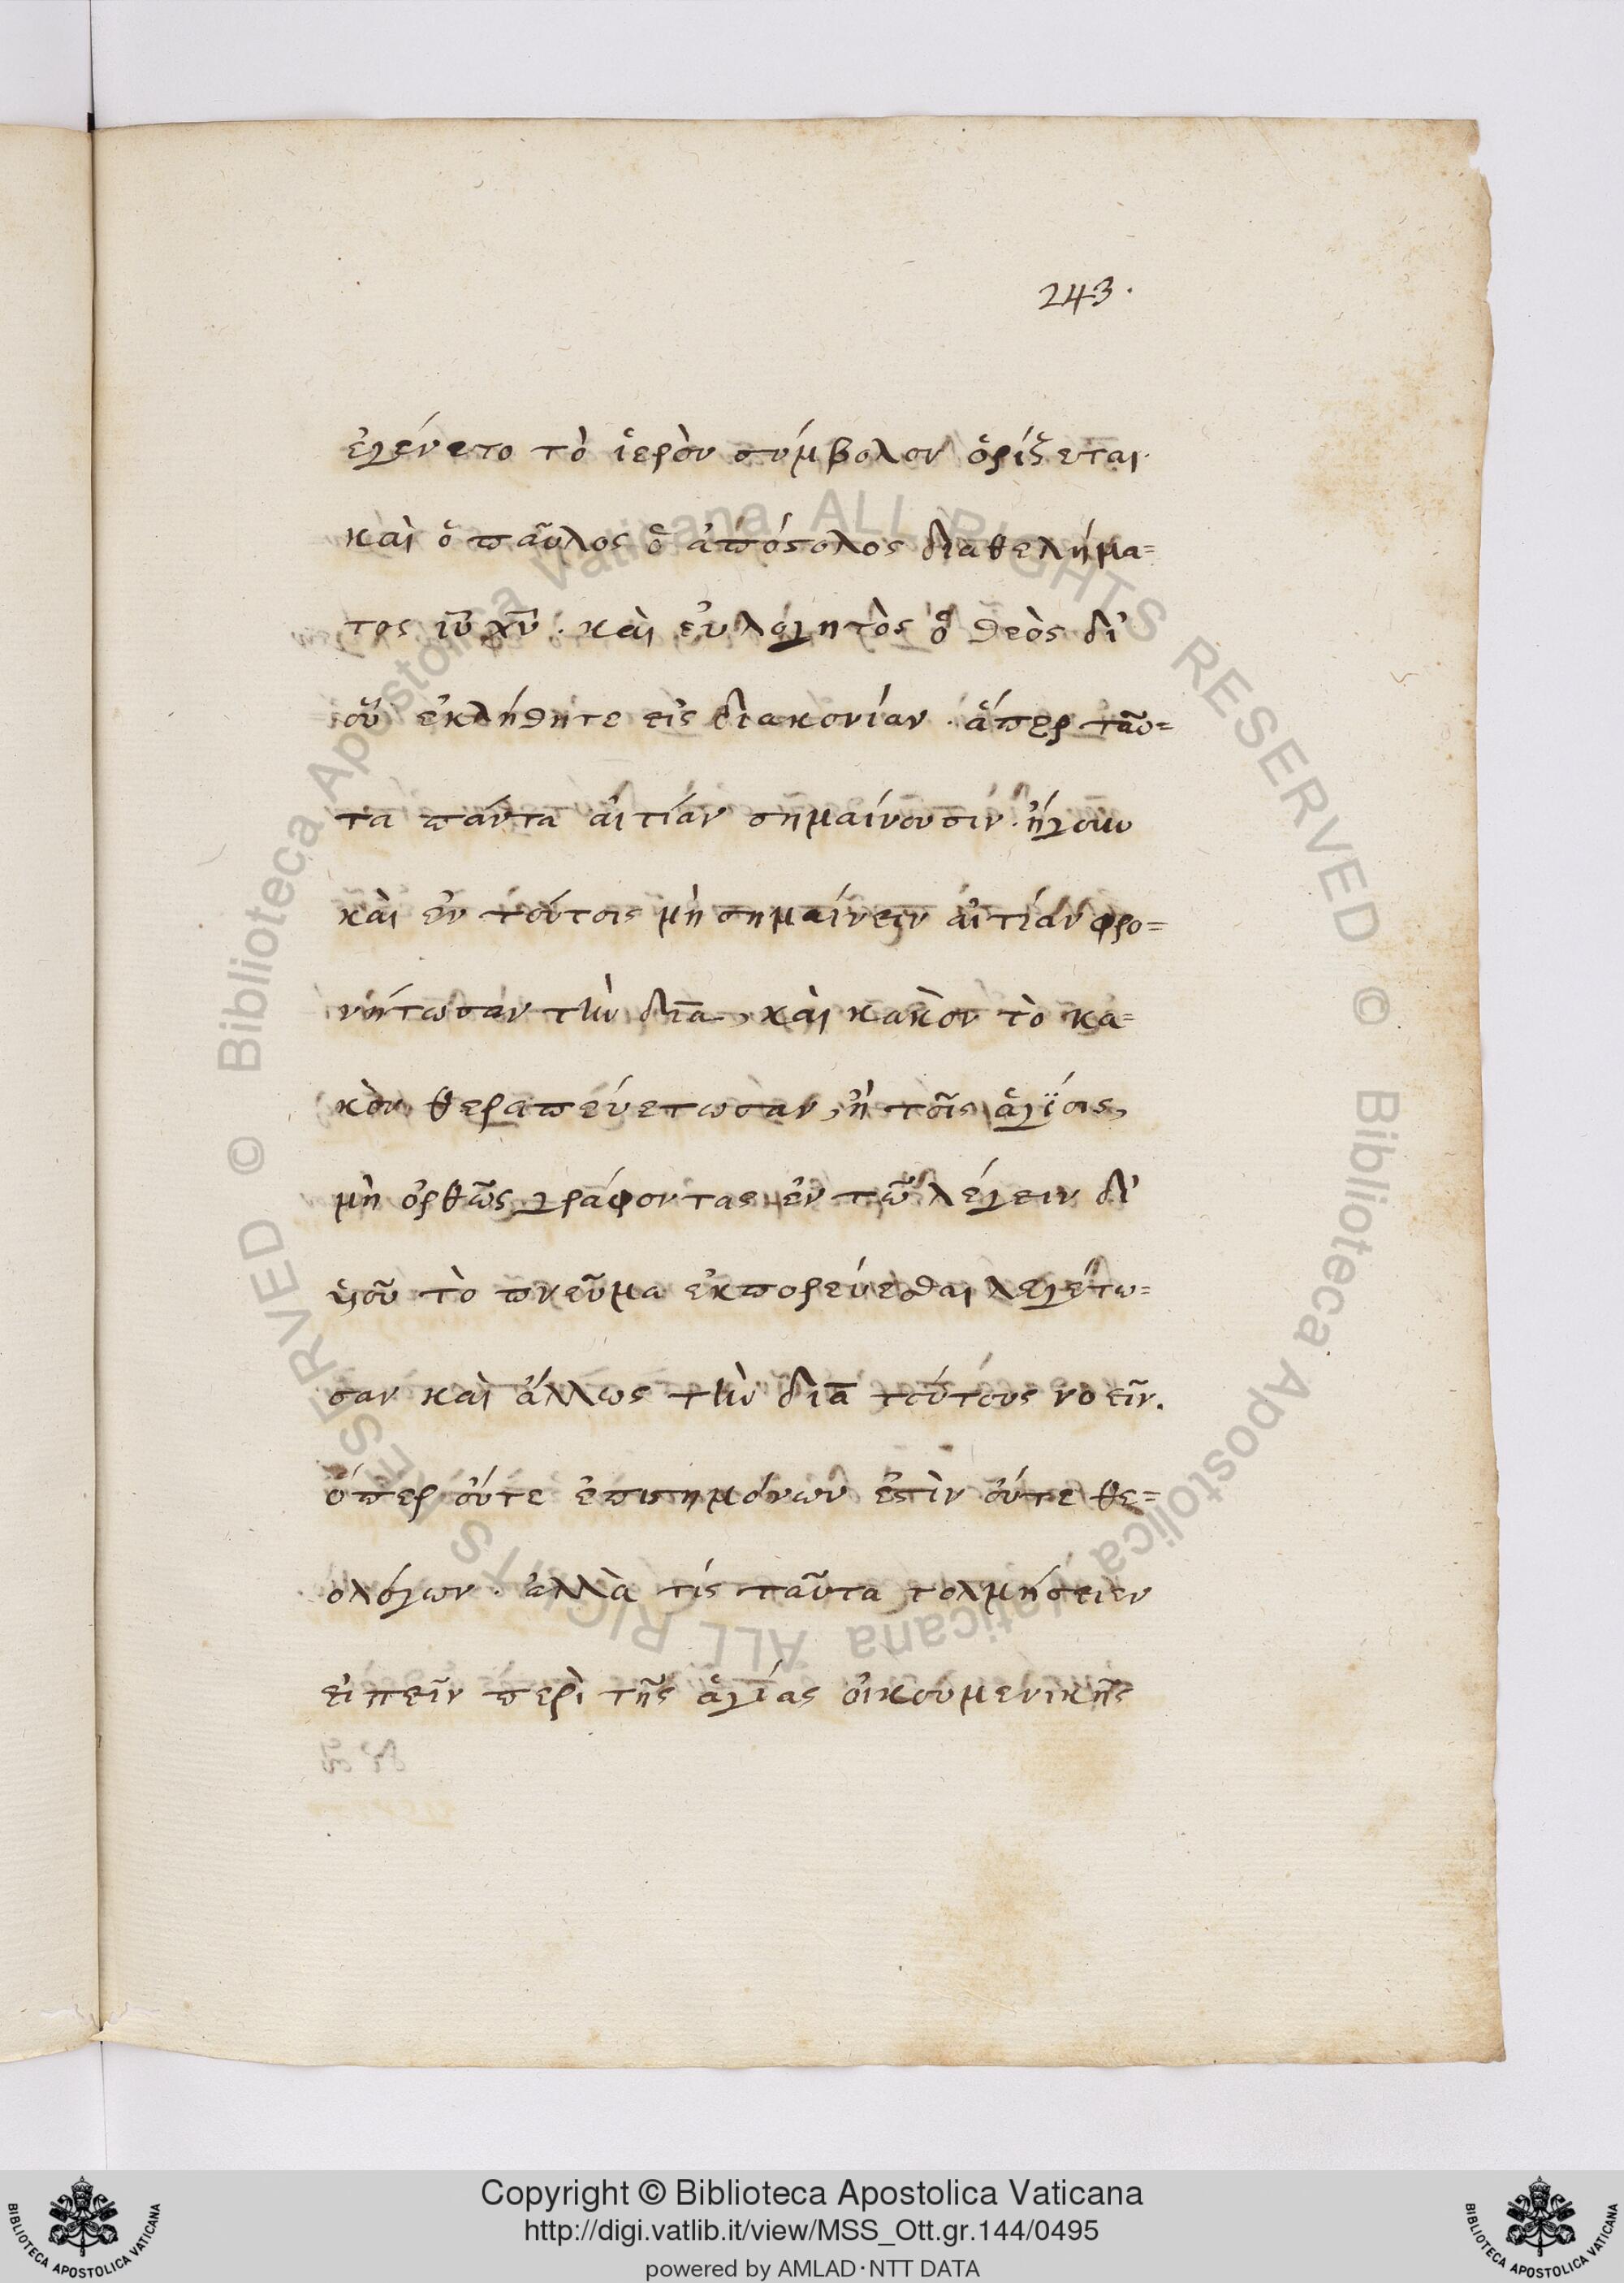 243.
ἐγένετο τὸ ἱερὸν σύμβολον ὁρίζεται.
καὶ ὁ παῦλος ὁ ἀπόστολος διαθελήμα=
τος ιῦ χῦ. καὶ εὐλόγητὸς ὁ θεὸς δι'
οὗ ἐκλήθητε εἰς διακονίαν. ἅπερ ταῦ=
τα πάντα αἰτίαν σημαίνουσιν. ἤγουν
καὶ ἐν τούτοις μὴ σημαίνειν αἰτίαν φρο=
νήτωσαν τὴν δῑα, καὶ κακὸν τὸ κα=
κὸν θεραπεύετωσαν, ἢ τοῖς ἁγίοις,
μὴ ὀρθῶς γράφοντας ἐν τῶ λέγειν δι'
ὑοῦ τὸ πνεῦμα ἐκπορεύεσθαι λεγέτω=
σαν καὶ ἄλλως τὴν δῑα τούτους νοεῖν.
ὅπερ οὔτε ἐπιστημόνων ἐστὶν οὔτε θε=
ολόγων. ἀλλὰ τίς ταῦτα τολμήσειεν
εἰπεῖν περὶ τῆς ἁγίας οἰκουμενικῆς
© Biblioteca Apostolica Vaticana ALL RIGHTS RESERVED © Biblioteca Apostolica Vaticana ALL RIGHTS RESERVED
Copyright © Biblioteca Apostolica Vaticana
http://digi.vatlib.it/view/MSS_Ott.gr.144/0495
powered by AMLAD·NTT DATA
BIBLIOTECA APOSTOLICA VATICANA
BIBLIOTECA APOSTOLICA VATICANA